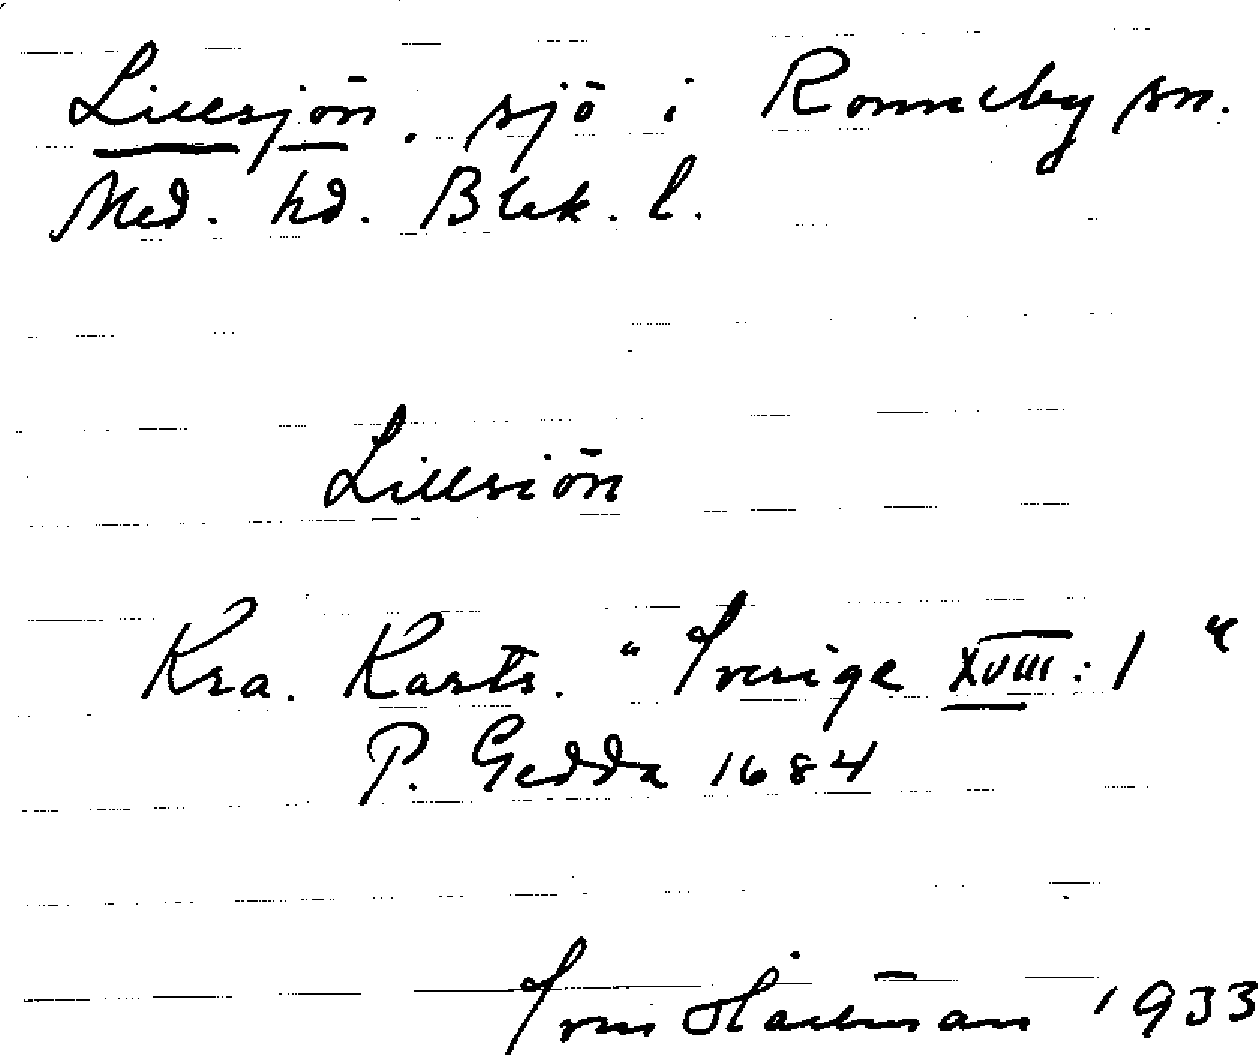 Lillsjön. sjö i Ronneby sn.
Med. hd. Blek. l.
Lillsiön
Kra. Kartv. "Sverige XVIII:1"
P. Gedda 1684
Sven 1933